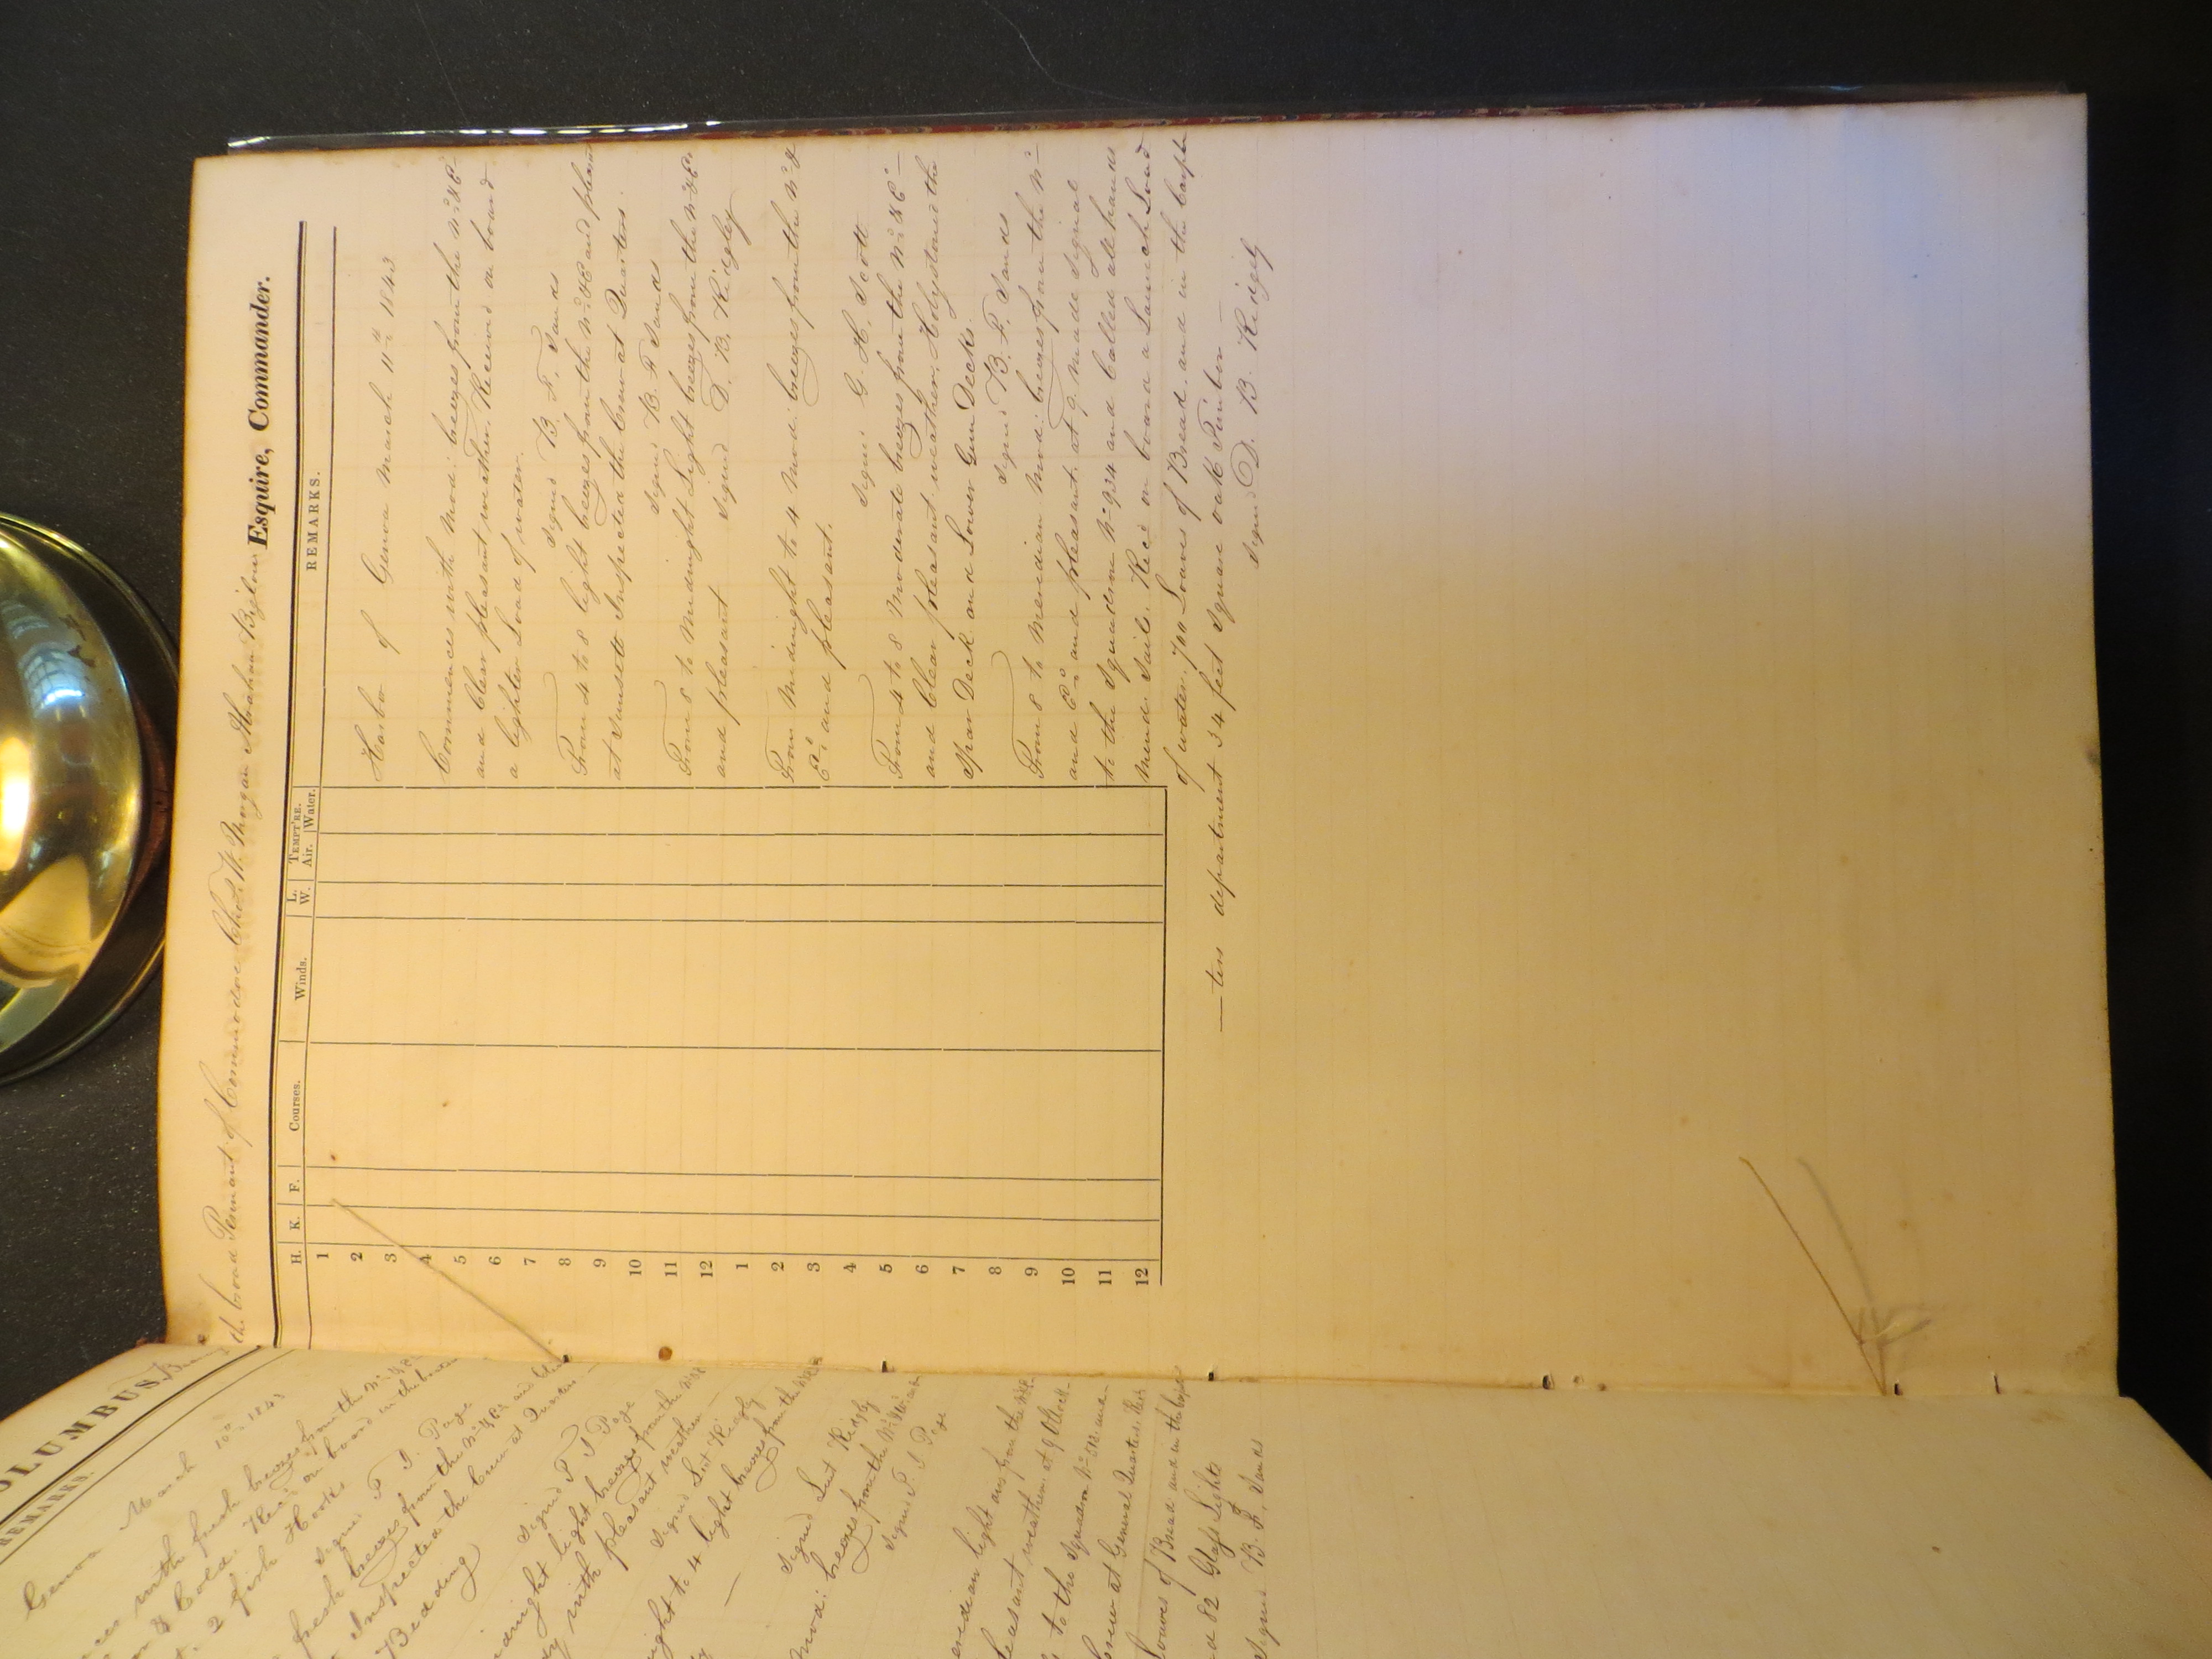 OLUMBUS,
REMARKS.
Geneva March 10th 1843
with fresh breezes from the
Cold. Rec'd on board in the
2 fish Hooks
Signed P. I. Page
fresh breezes from the N & Ed
Inspected the Crew at Quarters
Bedding
Signed P I Page
light breezes from the
with pleasant weather
Signed Lut Ridgely
to 4 light breezes from the
Signed Lut Ridgely
Mod: breezes from the
Signed P. I Page
light airs from the
weather. at 9 Oclock
to the Squadron
Crew at General Quarters.
Loaves of Bread and in the
82 Glass Lights
Signed B. F. Sands
the broad Pennant of Commodore Chs. W. Morgan Abraham Bigelow Esquire, Commander.
H. K. F. Courses. Winds. L. W. TEMPT'RE. Air. Water. REMARKS.
1
2
3
4
5
6
7
8
9
10
11
12
1
2
3
4
5
6
7
8
9
10
11
12
Harbor of Genoa March 11th 1843
Commences with Mod: breezes from the Nd & Ed
and Clear pleasant weather. Received on board
a lighter Load of water.
Signed B. F. Sands
From 4 to 8 light breezes from the Nd & Ed and pleasant
at Sunsett Inspected the Crew at Quarters.
Signed B. F Sands
From 8 to Midnight Light breezes from the Nd & Ed
and pleasant Signed D. B. Ridgely
From Midnight to 4 Mod: breezes from the Nd &
Ed and pleasant.
Signed G. H. Scott
From 4 to 8 Moderate breezes from the Nd & Ed
and Clear pleasant weather. Holystoned the
Spar Deck and Lower Gun Decks.
Signed B. F. Sands
From 8 to Meredian Mod: breezes from the Nd
and Ed and pleasant. at 9. made Signal
to the Squadron No 934 and Called all hands
Mend Sail. Rec'd on board a Launch Load
of water. 700 Loaves of Bread. and in the Carpen
—ters department 34 feet Square oak Timber—
Signed D. B. Ridgely